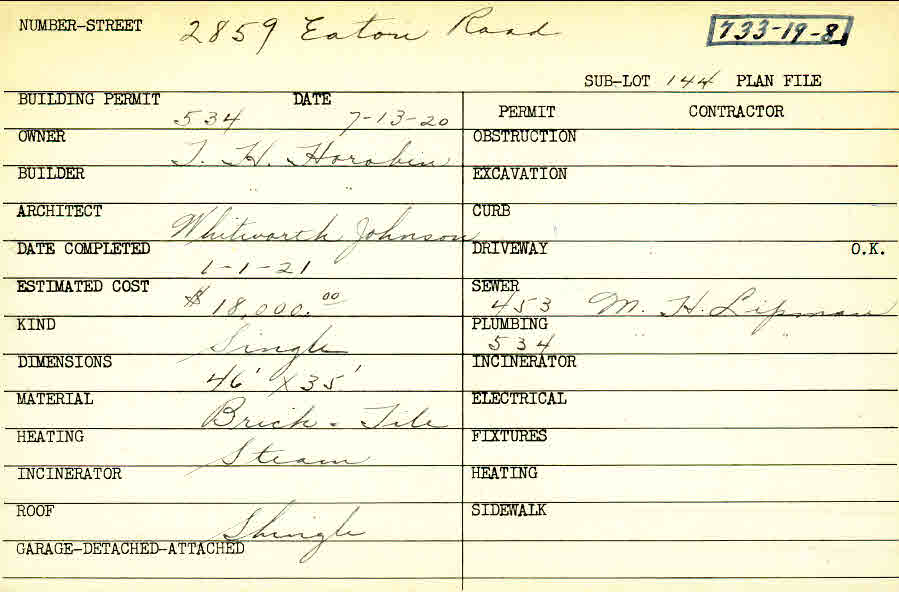 NUMBER-STREET 2859 Eaton Road 733-19-8
SUB-LOT 144 PLAN FILE
BUILDING PERMIT 534 DATE 7-13-20
PERMIT CONTRACTOR
OWNER T. H. Horobin
OBSTRUCTION
BUILDER " "
EXCAVATION
ARCHITECT Whitworth Johnson
CURB
DATE COMPLETED 1-1-21
DRIVEWAY O.K.
ESTIMATED COST $18,000.00
SEWER 453 M. H. Lipman
KIND Single
PLUMBING 534 " "
DIMENSIONS 46' x 35'
INCINERATOR
MATERIAL Brick - Tile
ELECTRICAL
HEATING Steam
FIXTURES
INCINERATOR
HEATING
ROOF Shingle
SIDEWALK
GARAGE-DETACHED-ATTACHED